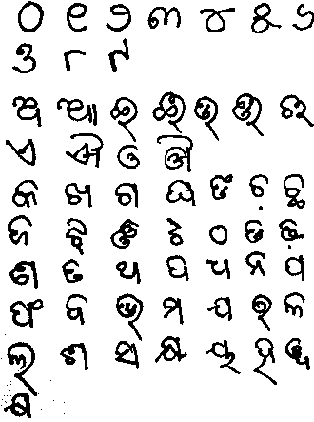 ୦ ୧ ୨ ୩ ୪ ୫ ୬
୭ ୮ ୯
ଅ ଆ ଇ ଈ ଉ ଊ ଋ
ଏ ଐ ଓ ଔ
କ ଖ ଗ ଘ ଙ ଚ ଛ
ଜ ଝ ଞ ଟ ଠ ଡ ଢ
ଣ ତ ଥ ଦ ଧ ନ ପ
ଫ ବ ଭ ମ ଯ ର ଳ
ଲ ଶ ସ କ୍ଷ ୟ ହ
ଷ